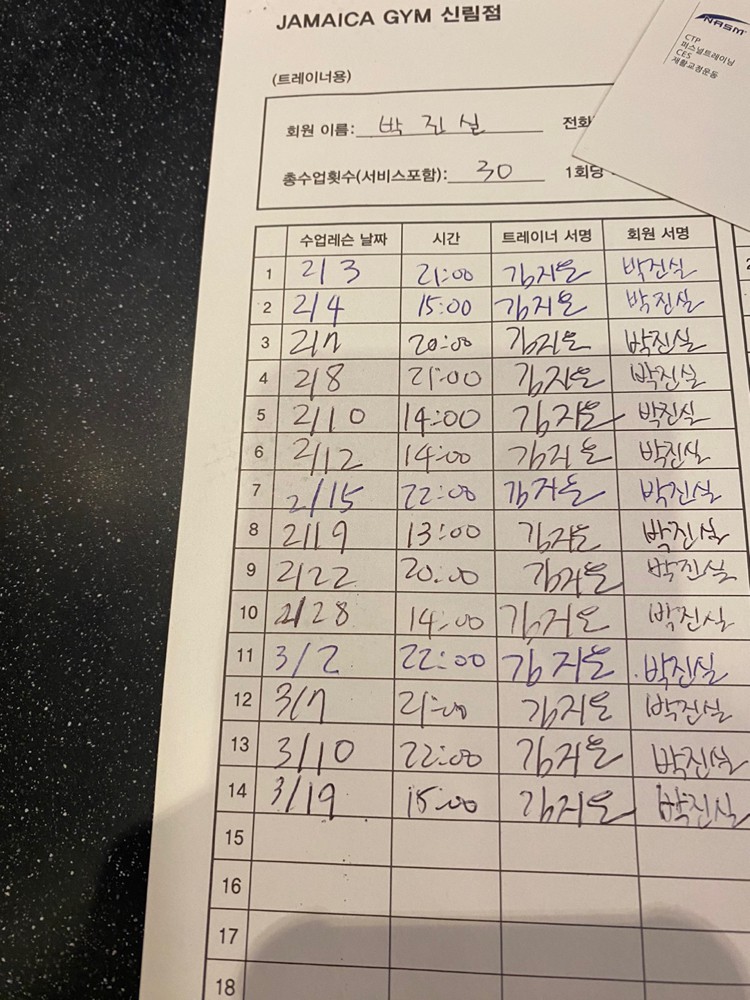 JAMAICA GYM 신림점
NASM
CTP
퍼스널트레이닝
CES
재활교정운동
(트레이너용)
회원 이름: 박진실 전화
총수업횟수(서비스포함): 30 1회당
수업레슨 날짜 시간 트레이너 서명 회원 서명
1 2/3 21:00 김지은 박진실
2 2/4 15:00 김지은 박진실
3 2/7 20:00 김지은 박진실
4 2/8 21:00 김지은 박진실
5 2/10 14:00 김지은 박진실
6 2/12 14:00 김지은 박진실
7 2/15 22:00 김지은 박진실
8 2/19 13:00 김지은 박진실
9 2/22 20:00 김지은 박진실
10 2/28 14:00 김지은 박진실
11 3/2 22:00 김지은 박진실
12 3/7 21:00 김지은 박진실
13 3/10 22:00 김지은 박진실
14 3/19 15:00 김지은 박진실
15
16
17
18